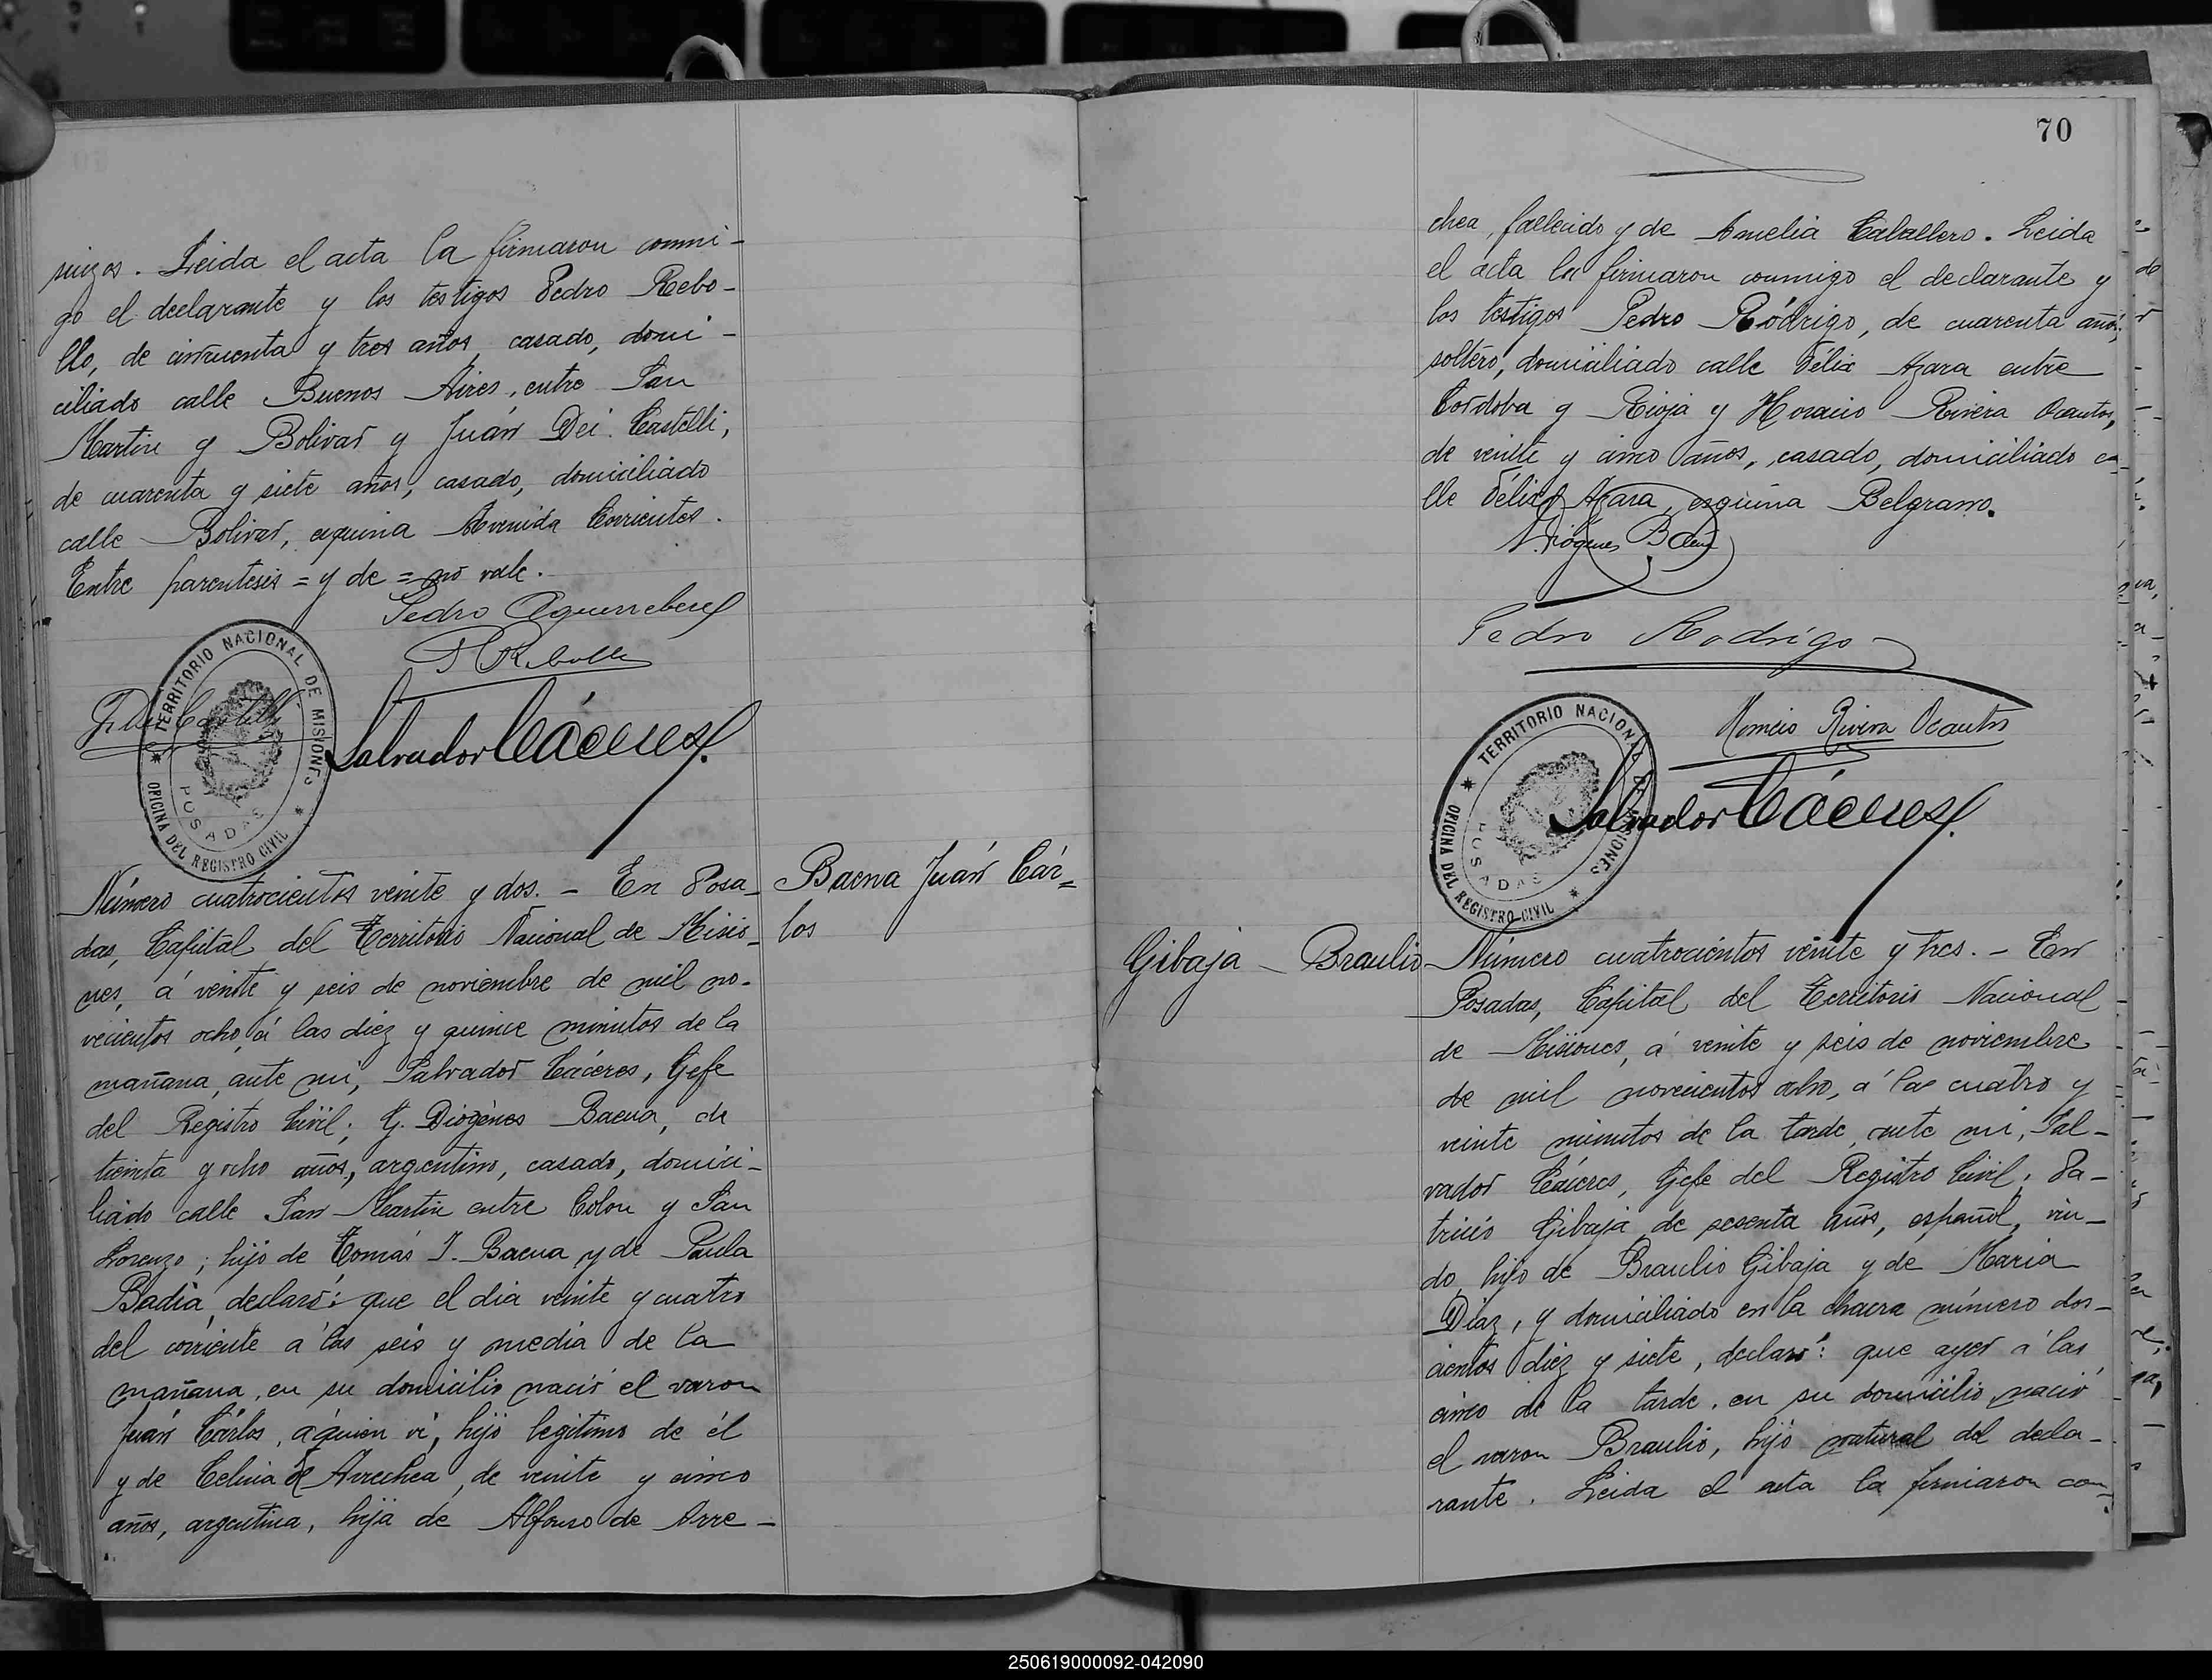 suizos. Leida el acta la firmaron conmi-
go el declarante y los testigos Pedro Rebo-
llo, de cincuenta y tres años, casado, domi-
ciliado calle Buenos Aires, entre San
Martin y Bolivar y Juán Dei Castelli,
de cuarenta y siete años, casado, domiciliado
calle Bolivar, esquina Avenida Corrientes.
Entre parentesis = y de = no vale.
Pedro
P Rebollo
Salvador Cáceres
TERRITORIO NACIONAL DE MISIONES
POSADAS
OFICINA DEL REGISTRO CIVIL
Número cuatrocientos veinte y dos. - En Posa-
das, Capital del Territorio Nacional de Misio-
nes, á veinte y seis de noviembre de mil no-
vecientos ocho, á las diez y quince minutos de la
mañana, ante mi, Salvador Cáceres, Gefe
del Registro Civil; G. Diógenes Baena, de
treinta y ocho años, argentino, casado, domici-
liado calle San Martin entre Colon y San
Lorenzo; hijo de Tomás I. Baena y de Paula
Badia, declaró: que el dia veinte y cuatro
del corriente á las seis y media de la
mañana, en su domicilio nació el varon
Juán Cárlos, á quien vi, hijo legitimo de él
y de Celina de Arrechea, de veinte y cinco
años, argentina, hija de Alfonso de Arre-
Baena Juán Cár=
los
70
chea, fallecido y de Amelia Caballero. Leida
el acta la firmaron conmigo el declarante y
los testigos Pedro Ródrigo, de cuarenta años,
soltero, domiciliado calle Félix Azara entre
Cordoba y Rioja y Horacio Rivera Ocantos,
de veinte y cinco años, casado, domiciliado ca-
lle Félix Azara, esquina Belgrano.
Diógenes Baena
Pedro Rodrigo
Horacio Rivera Ocantos
Salvador Cáceres
TERRITORIO NACIONAL DE MISIONES
POSADAS
OFICINA DEL REGISTRO CIVIL
Gibaja - Braulio
Número cuatrocientos veinte y tres. - En
Posadas, Capital del Territorio Nacional
de Misiones, á veinte y seis de noviembre
de mil novecientos ocho, á las cuatro y
veinte minutos de la tarde, ante mi, Sal-
vador Cáceres, Gefe del Registro Civil; Pa-
tricio Gibaja, de sesenta años, español, viu-
do, hijo de Braulio Gibaja y de Maria
Diaz, y domiciliado en la chacra número dos-
cientos diez y siete, declaró: que ayer á las
cinco de la tarde, en su domicilio, nació
el varon Braulio, hijo natural del decla-
rante. Leida el acta la firmaron con-
250619000092-042090